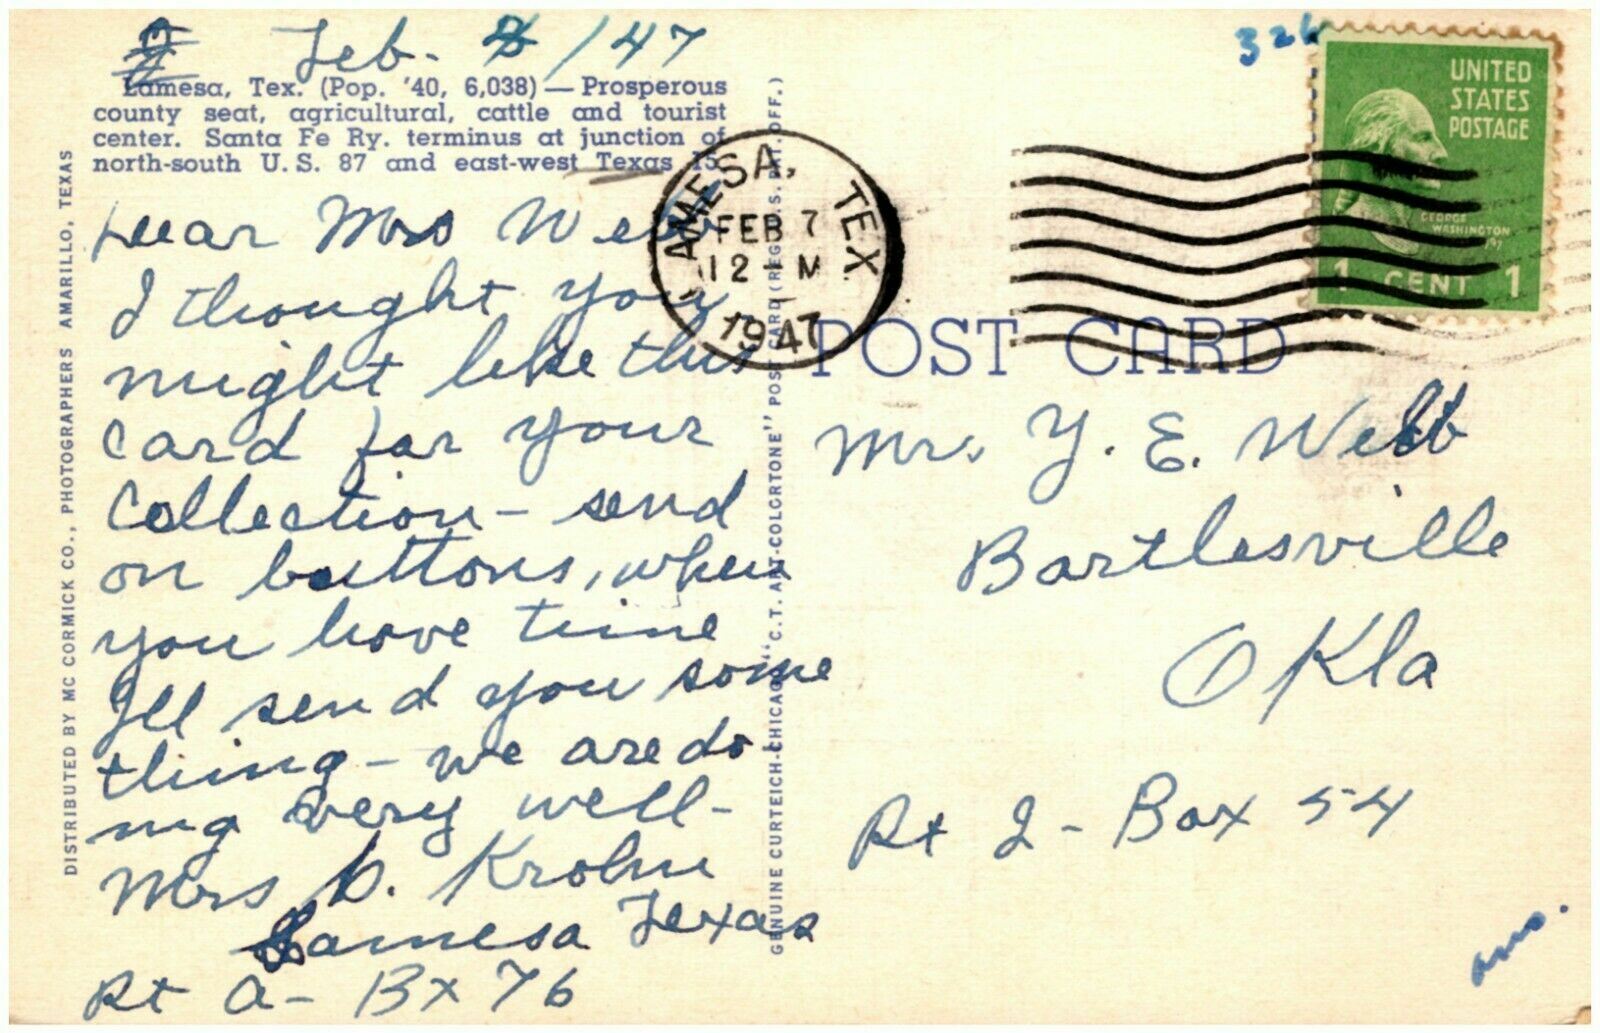 Feb - 8/147
Lamesa, Tex. (Pop. '40, 6,038) — Prosperous
county seat, agricultural, cattle and tourist
center. Santa Fe Ry. terminus at junction of
north-south U.S. 87 and east-west Texas 15.
Dear Mrs Webb
I thought you
might like this
card for your
collection - send
on buttons, when
you have time
I'll send you some
thing - we are do
ing very well -
Mrs D. Krohn
Lamesa Texas
Rt A - Bx 76
DISTRIBUTED BY MC CORMICK CO., PHOTOGRAPHERS AMARILLO, TEXAS
GENUINE CURTEICH-CHICAGO "C.T. ART-COLORTONE" POST CARD (REG. U.S. PAT. OFF.)
LAMESA, TEX.
FEB 7
12 - M
1947
326
UNITED
STATES
POSTAGE
GEORGE
WASHINGTON
1 CENT 1
POST CARD
Mrs. Y. E. Webb
Bartlesville
Okla
Rt 2 - Box 54
ans.